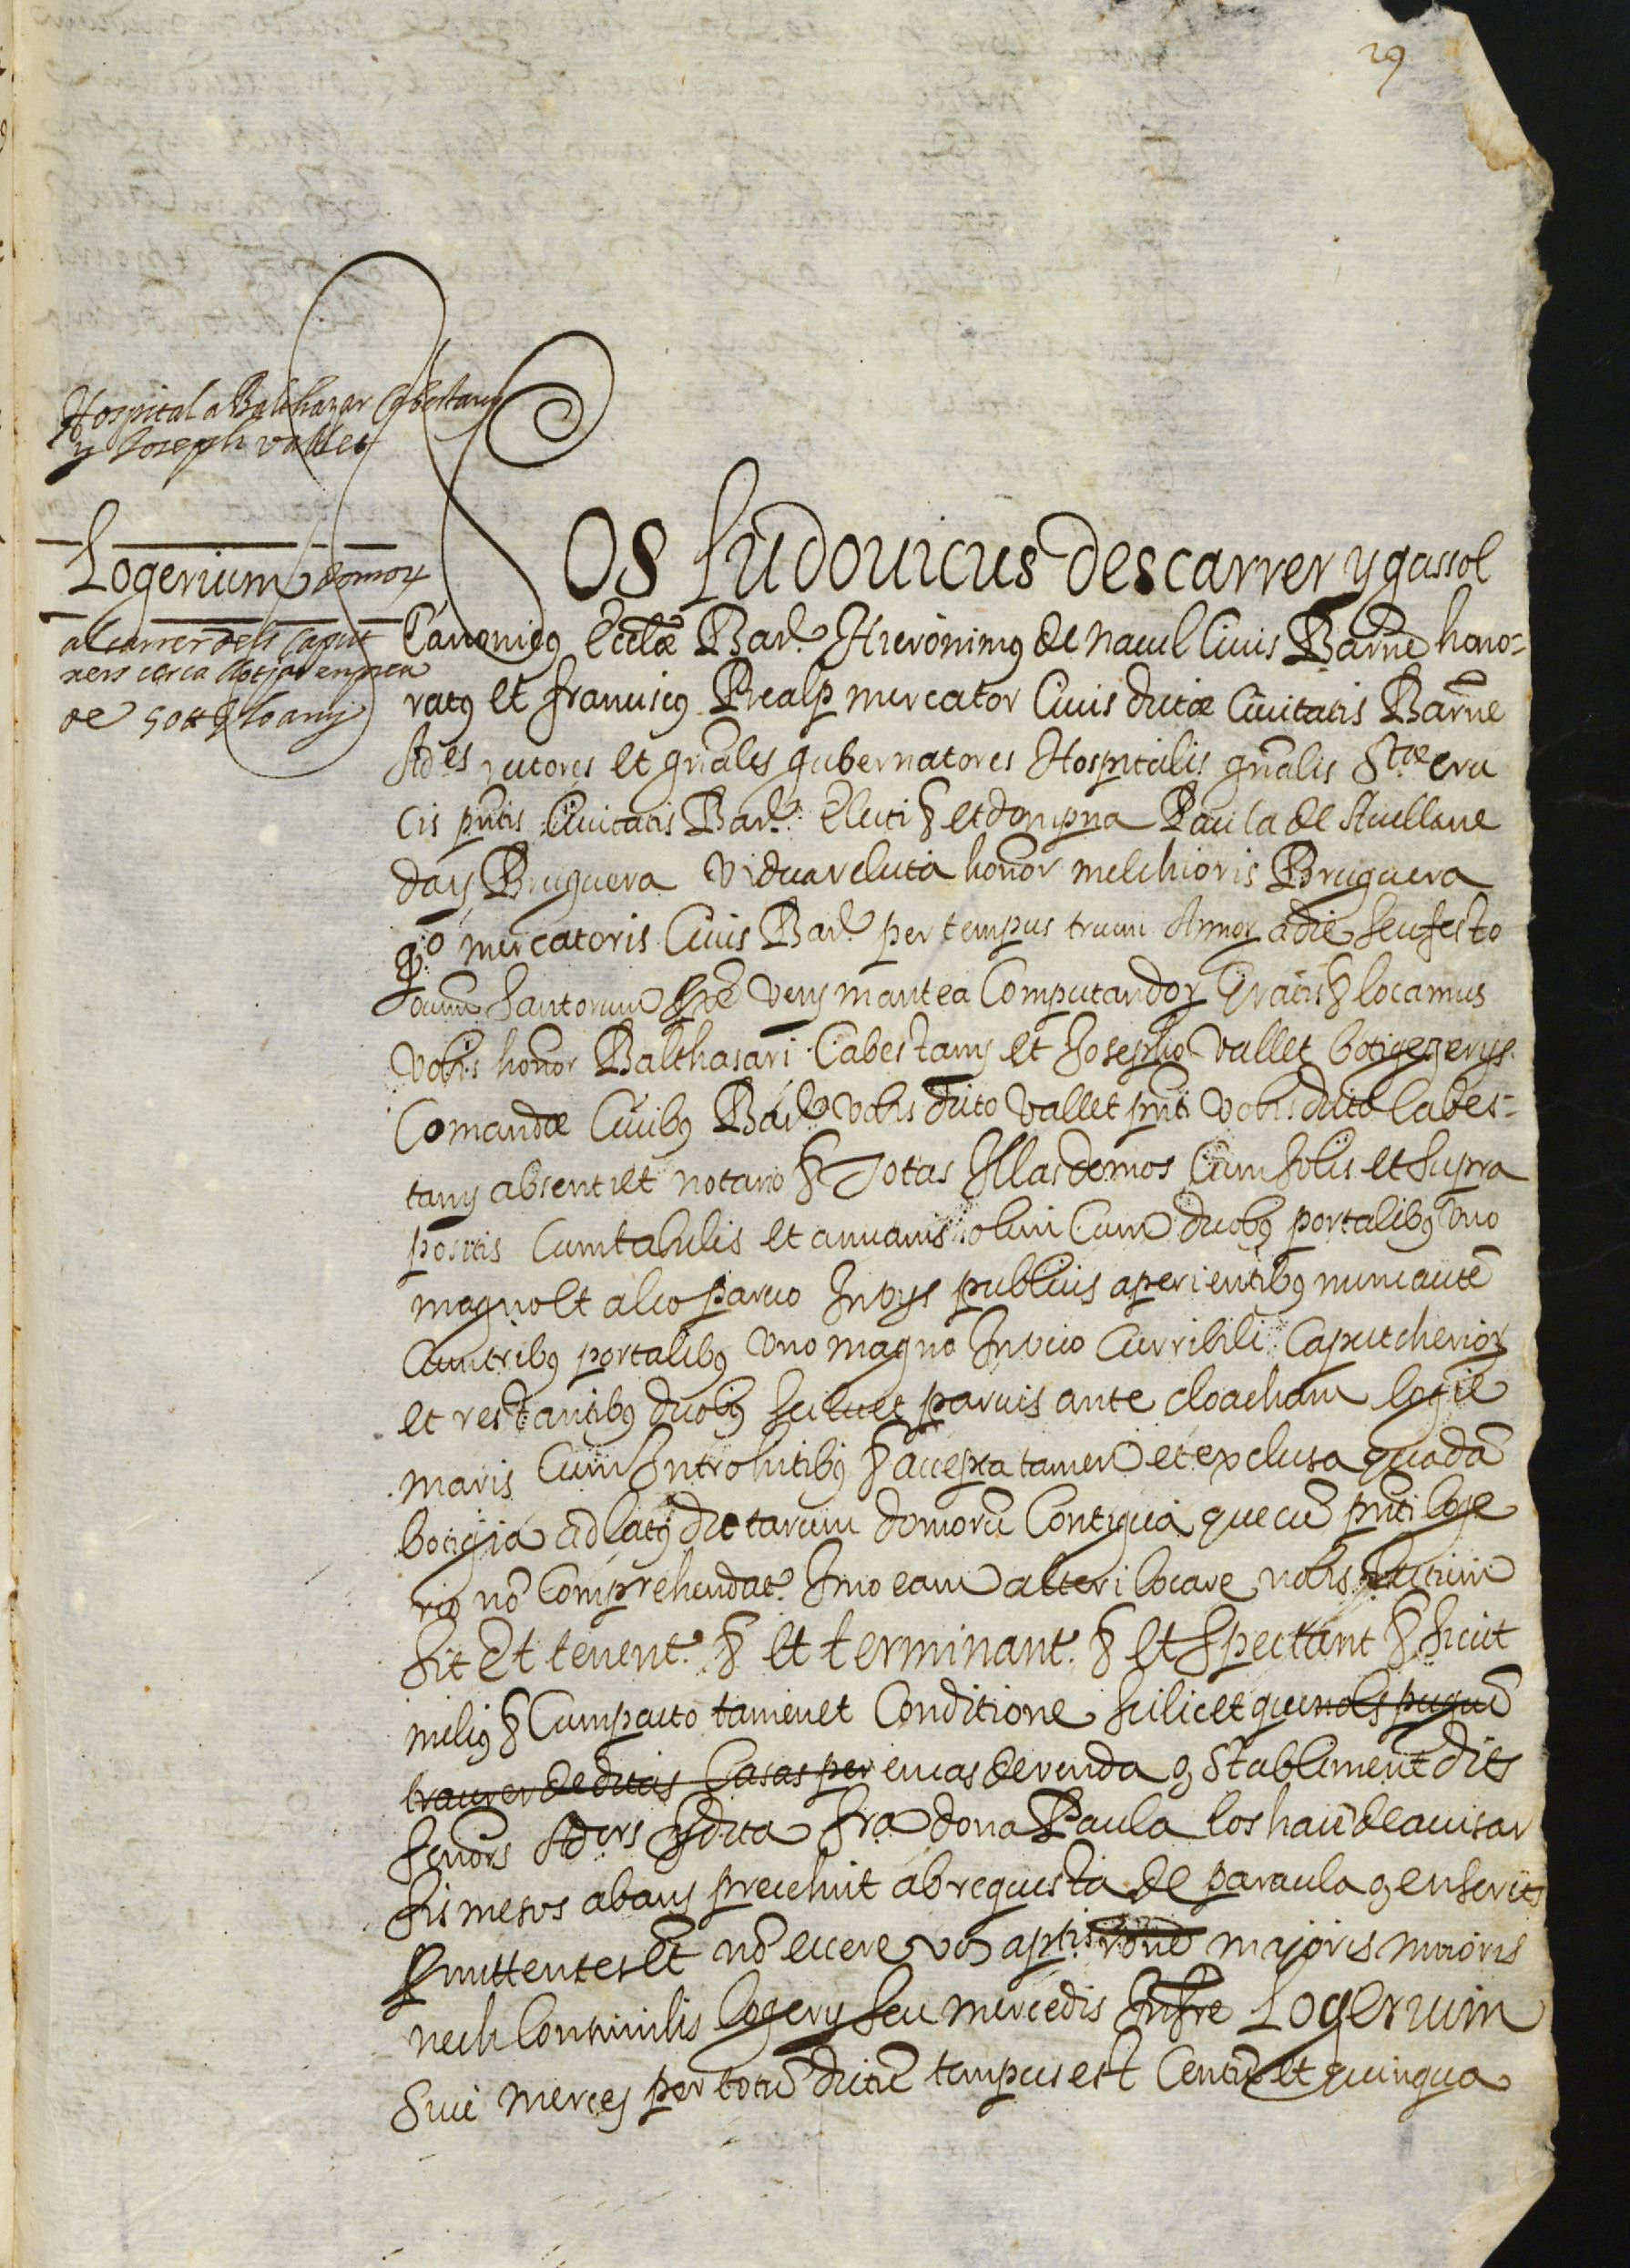 29
Hospital a Balthazar Cabestany
y Joseph vallet
Logerium domorꝝ
al carrer dels Caput
xers cerca llotja en preu
de 50 ℔ lo any
Nos Ludouicus descarrer y gassol
Canonicꝰ Ecctæ Barᵉ Hieronimꝰ de Nauel Ciuis Barne hono=
ratꝰ et franciscꝰ Realp mercator Ciuis dictæ Ciuitatis Barne
Adᵉˢ rectores et gnales gubernatores Hospitalis gnalis Stæ cru
cis pntis Ciuitatis Barᵉ Electi ꝛ et dompna Paula de Auellane
day Bruguera vidua relicta honor melchioris Bruguera
qᵒ mercatoris Ciuis Barᵉ per tempus trium Annorꝝ a die seu festo
oium Santorum prox venj in antea Computandorꝝ Gratis ꝛ locamus
vobis honor Balthasari Cabestany et Josepho Vallet botigegerys
Comandæ Ciuibꝰ Barᵉ vobis dicto Vallet pnti vobis dicto Cabes=
tany absenti et notario ꝛ Totas Illas domos Cum solis et supra
positis Cum tabulis et Cum duobꝰ portalibꝰ vno
magno et alio paruo In vys publicis aperientibꝰ nunc aute
Cum tribꝰ portalibꝰ vno magno In vico Curribili Caputcheriorꝝ
et restantibꝰ duobꝰ scilicet paruis ante cloacham logie
maris Cum Introhitibꝰ ꝛ accepta tamen et exclusa quada
botigia ad latꝰ dictarum domoru Contigua que cu pnti loge
rio no Comprehendat Imo eam alteri locare nobis licitum
sit Et tenent ꝛ et terminant ꝛ et spectant ꝛ sicut
meliꝰ ꝛ Cum pacto tamen et Conditione scilicet que nols pugue
traurer de dicas Casas per en cas de venda o stabliment dits
senors Adᵒʳˢ y dita sra dona Paula los haie de auisar
sis mesos abans precehint ab requesta de paraula o en scrits
Pmittentes et no eccere vos a pntis rone majoris minoris
nech Consimilis logery seu mercedis Infre Logerium
siue merces per totu dictu tempus est Centu et quinqua